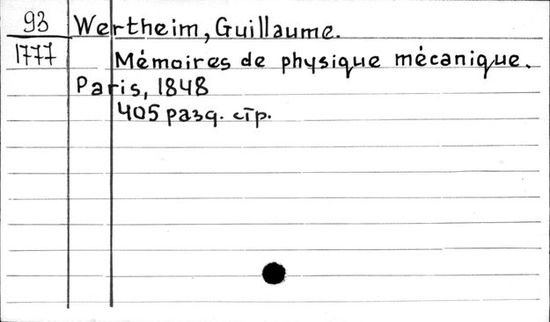 93
1777
Wertheim, Guillaume.
Mémoires de physique mécanique.
Paris, 1848
405 разд. стр.